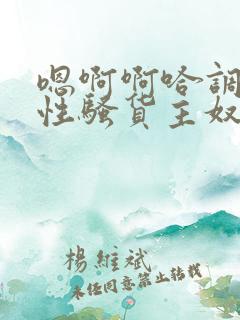 嗯啊啊哈調
性騷貨主奴
楊維斌
未经同意禁止转载